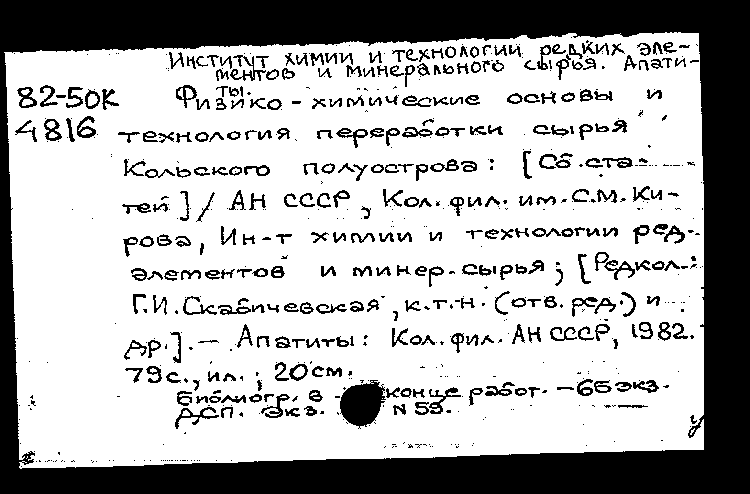 Институт химии и технологии редких эле-
ментов и минерального сырья. Апати-
ты.
82-50К Физико-химические основы и
4816 технология переработки сырья
Кольского полуострова: [Сб. ста-
тей] / АН СССР, Кол. фил. им. С.М. Ки-
рова, Ин-т химии и технологии ред.
элементов и минер. сырья; [Редкол.:
Г.И. Скабичевская, к.т.н. (отв. ред.) и
др.]. — Апатиты: Кол. фил. АН СССР, 1982.
79 с., ил.; 20 см.
Библиогр. в конце работ. — 65 экз.
ДСП. Экз. N 59.
У